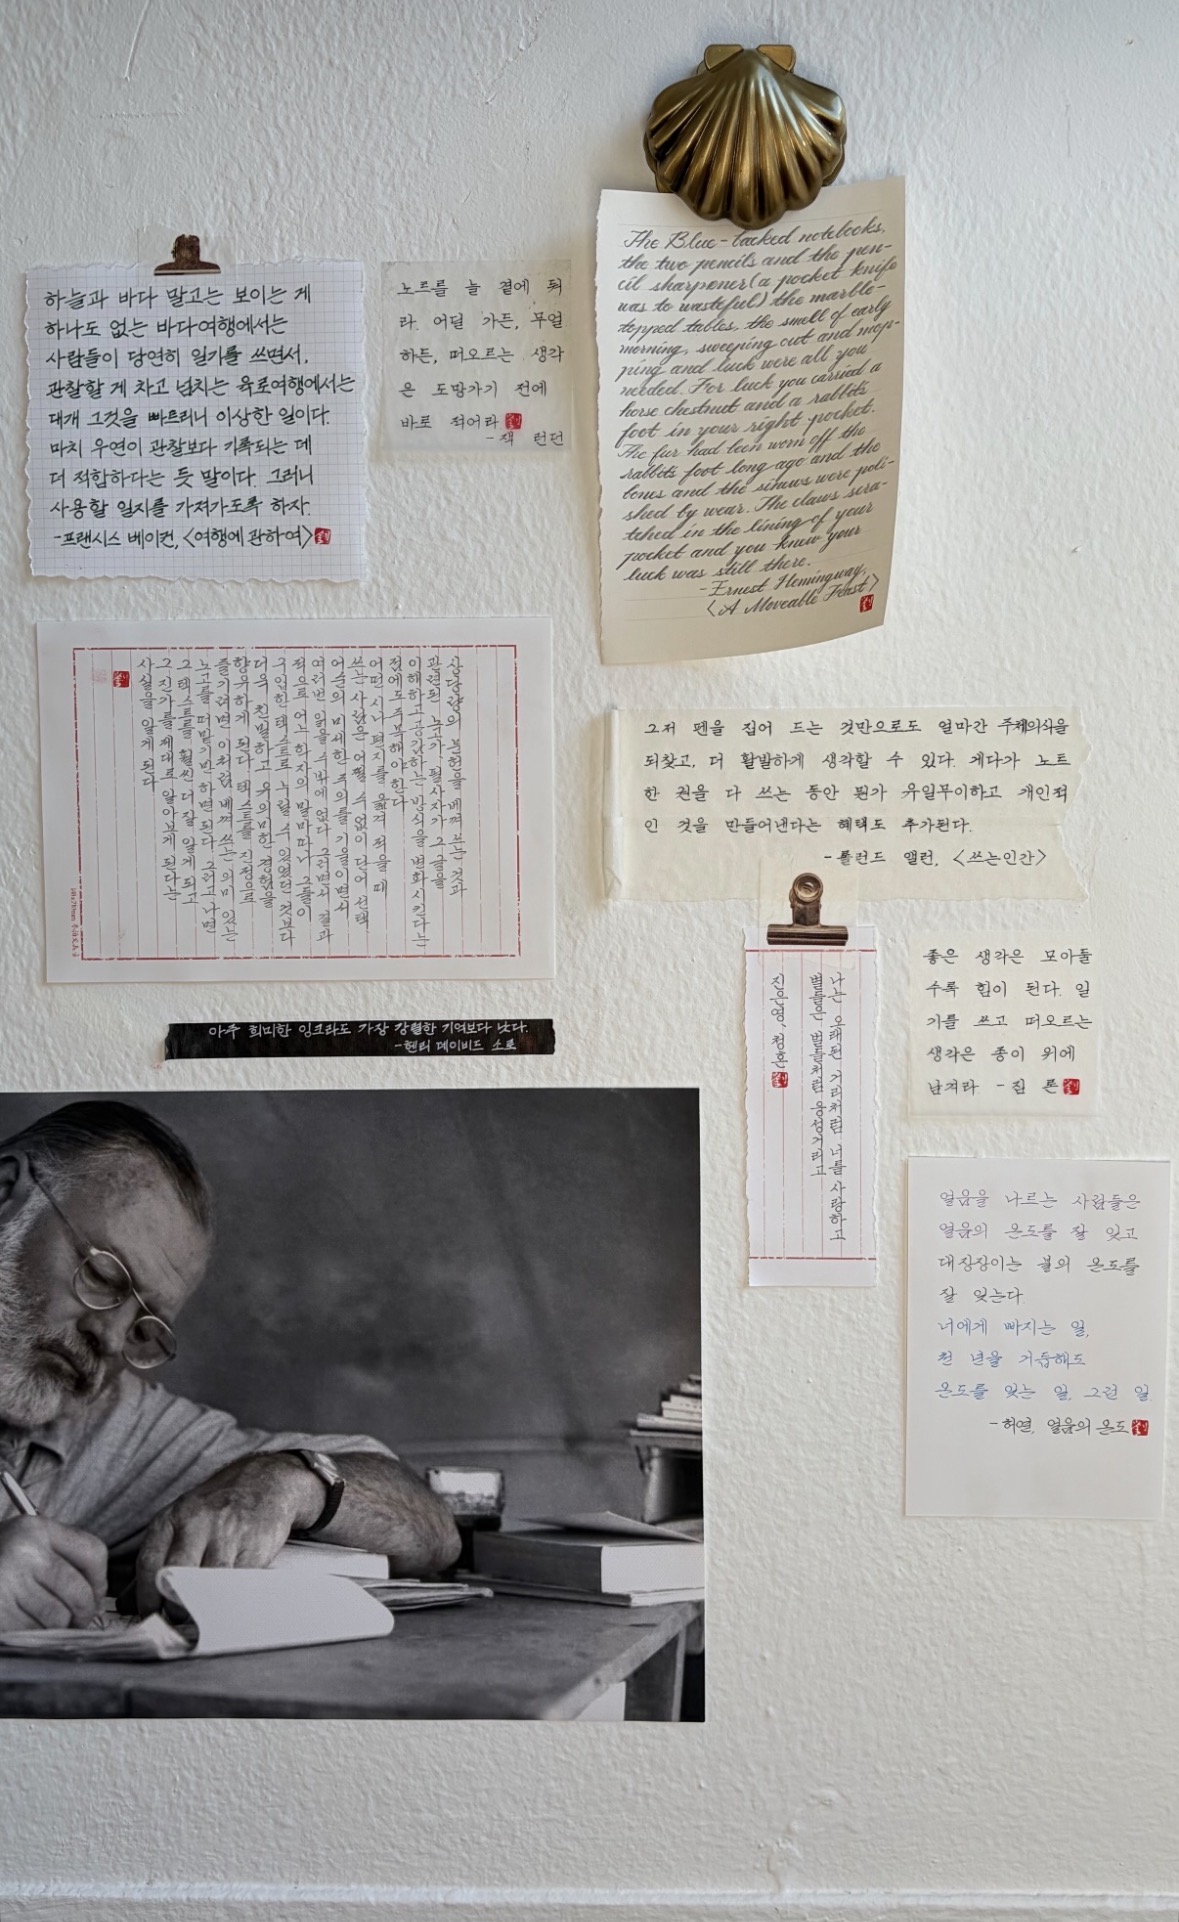 하늘과 바다 말고는 보이는 게
하나도 없는 바다여행에서는
사람들이 당연히 일기를 쓰면서,
관찰할 게 차고 넘치는 육로여행에서는
대개 그것을 빠트리니 이상한 일이다.
마치 우연이 관찰보다 기록되는 데
더 적합하다는 듯 말이다. 그러니
사용할 일지를 가져가도록 하자.
-프랜시스 베이컨, <여행에 관하여>
노트를 늘 곁에 둬
라. 어딜 가든, 무얼
하든, 떠오르는 생각
은 도망가기 전에
바로 적어라
- 잭 런던
The Blue-backed notebooks,
the two pencils and the pen-
cil sharpener(a pocket knife
was to wasteful) the marble-
topped tables, the smell of early
morning, sweeping out and mop-
ping and luck were all you
needed. For luck you carried a
horse chestnut and a rabbits
foot in your right pocket.
The fur had been worn off the
rabbits foot long ago and the
bones and the sinuws were poli-
shed by wear. The claws scra-
tched in the lining of your
pocket and you knew your
luck was still there.
-Ernest Hemingway,
<A Moveable Feast>
상당량의 문헌을 베껴 쓰는 것과
관련된 노고가, 필사자가 그 글을
이해하고 공감하는 방식을 변화시킨다는
점에도 주목해야 한다
어떤 시나 편지를 옮겨 적을 때
쓰는 사람은 어쩔 수 없이 단어 선택,
어순의 미세한 주의를 기울이면서
여러번 읽을 수밖에 없다 그러면서 결과
적으로 어느 학자의 말마따나 그들이
구입한 텍스트로 누릴 수 있었던 것보다
더욱 친밀하고 유의미한 경험을
향유하게 된다 텍스트를 진정으로
즐기려면 이처럼 베껴 쓰는 의미 있는
노고를 떠맡기만 하면 된다 그러고 나면
그 텍스트를 훨씬 더 잘 알게 되고
그 진가를 제대로 알아보게 된다는
사실을 알게 된다
그저 펜을 집어 드는 것만으로도 얼마간 주체의식을
되찾고, 더 활발하게 생각할 수 있다. 게다가 노트
한 권을 다 쓰는 동안 뭔가 유일무이하고 개인적
인 것을 만들어낸다는 혜택도 추가된다.
-롤런드 앨런, <쓰는인간>
아주 희미한 잉크라도 가장 강렬한 기억보다 낫다.
-헨리 데이비드 소로
나는 오래된 거리처럼 너를 사랑하고
별들은 벌들처럼 웅성거리고
진은영, 청혼
좋은 생각은 모아둘
수록 힘이 된다. 일
기를 쓰고 떠오르는
생각은 종이 위에
남겨라 -짐 론
얼음을 나르는 사람들은
얼음의 온도를 잘 잊고
대장장이는 불의 온도를
잘 잊는다
너에게 빠지는 일,
천 년을 거듭해도
온도를 잊는 일, 그런 일.
-허연, 얼음의 온도